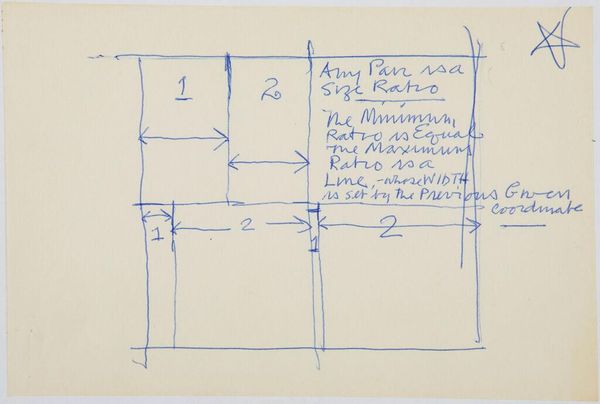 1
2
Any Pair is a
Size Ratio
The Minimum
Ratio is Equal
The Maximum
Ratio is a
Line, - whose WIDTH
is set by the Previous Given
Coordinate
1
2
1
2